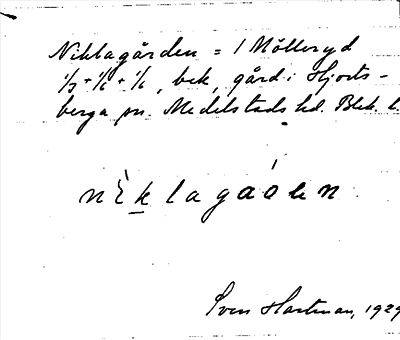 Niklagården = 1 Mölleryd
1/3 + 1/6 + 1/6, bek. gård i Hjorts-
berga sn. Medelstads hd. Blek. l.
nìk lagáoen
Sven Hartman, 1929